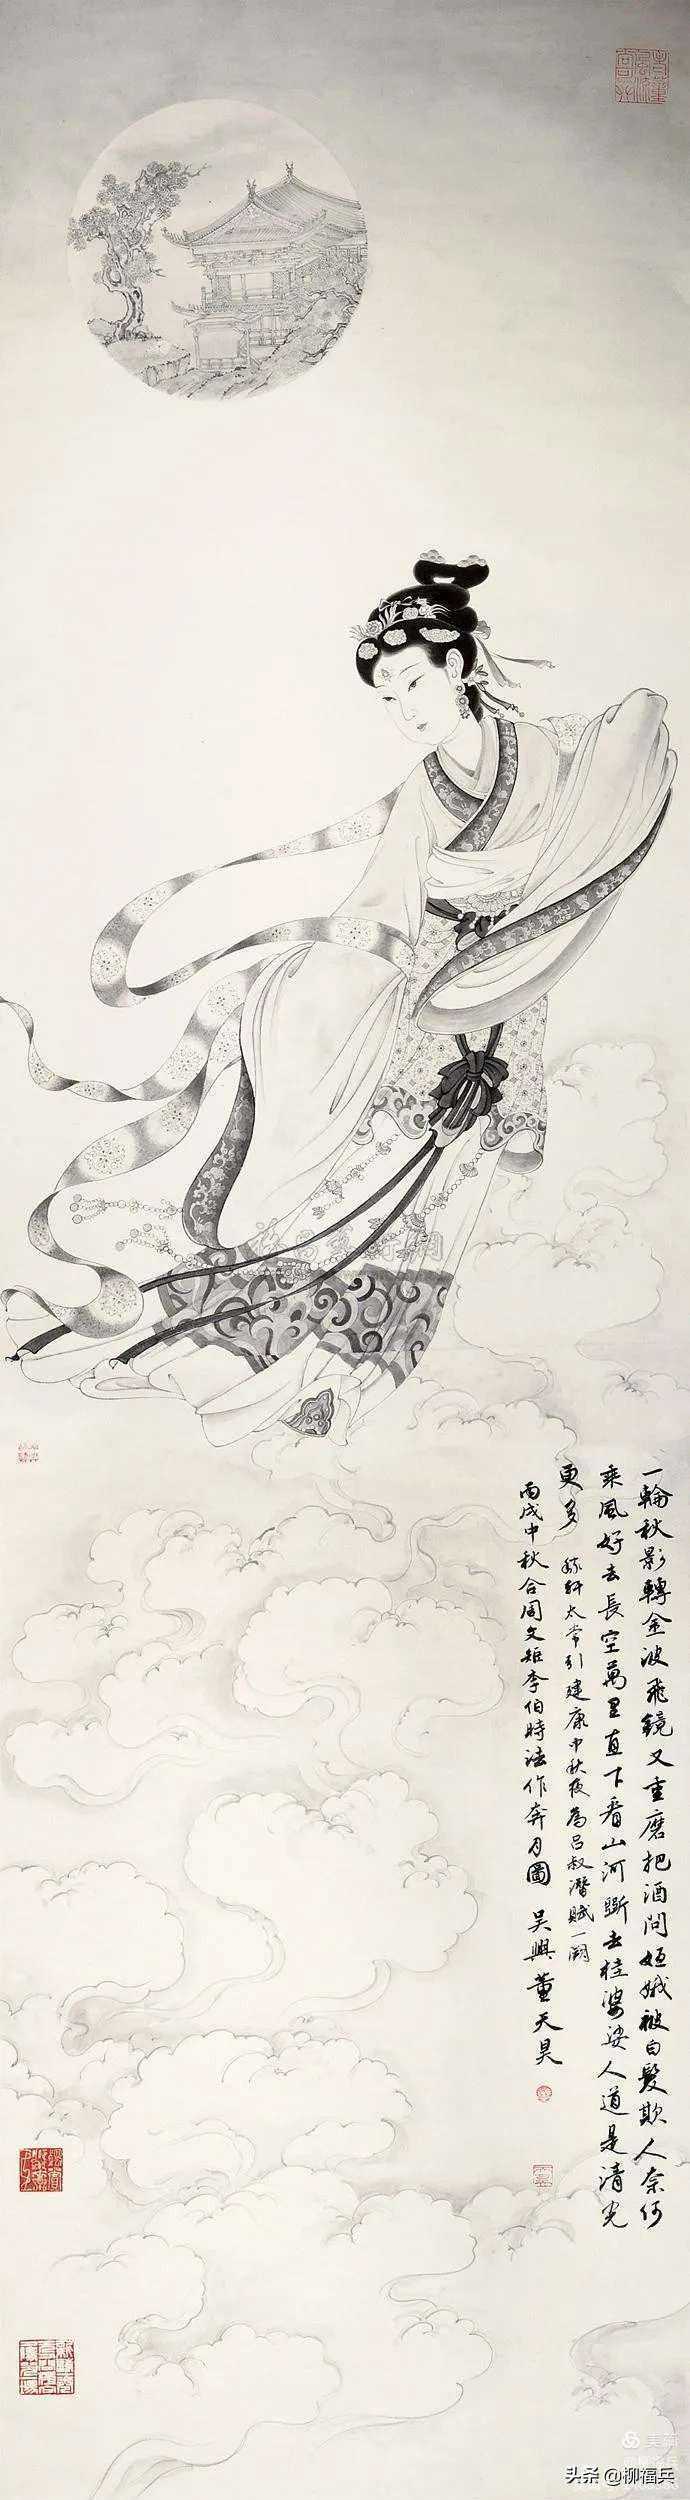 一輪秋影轉金波飛鏡又重磨把酒問姮娥被白髮欺人奈何
乘風好去長空萬里直下看山河斫去桂婆娑人道是清光
更多
稼軒太常引建康中秋夜為呂叔潛賦一闋
丙戌中秋合周文矩李伯時法作奔月圖 吳興董天昊
头条 @柳福兵